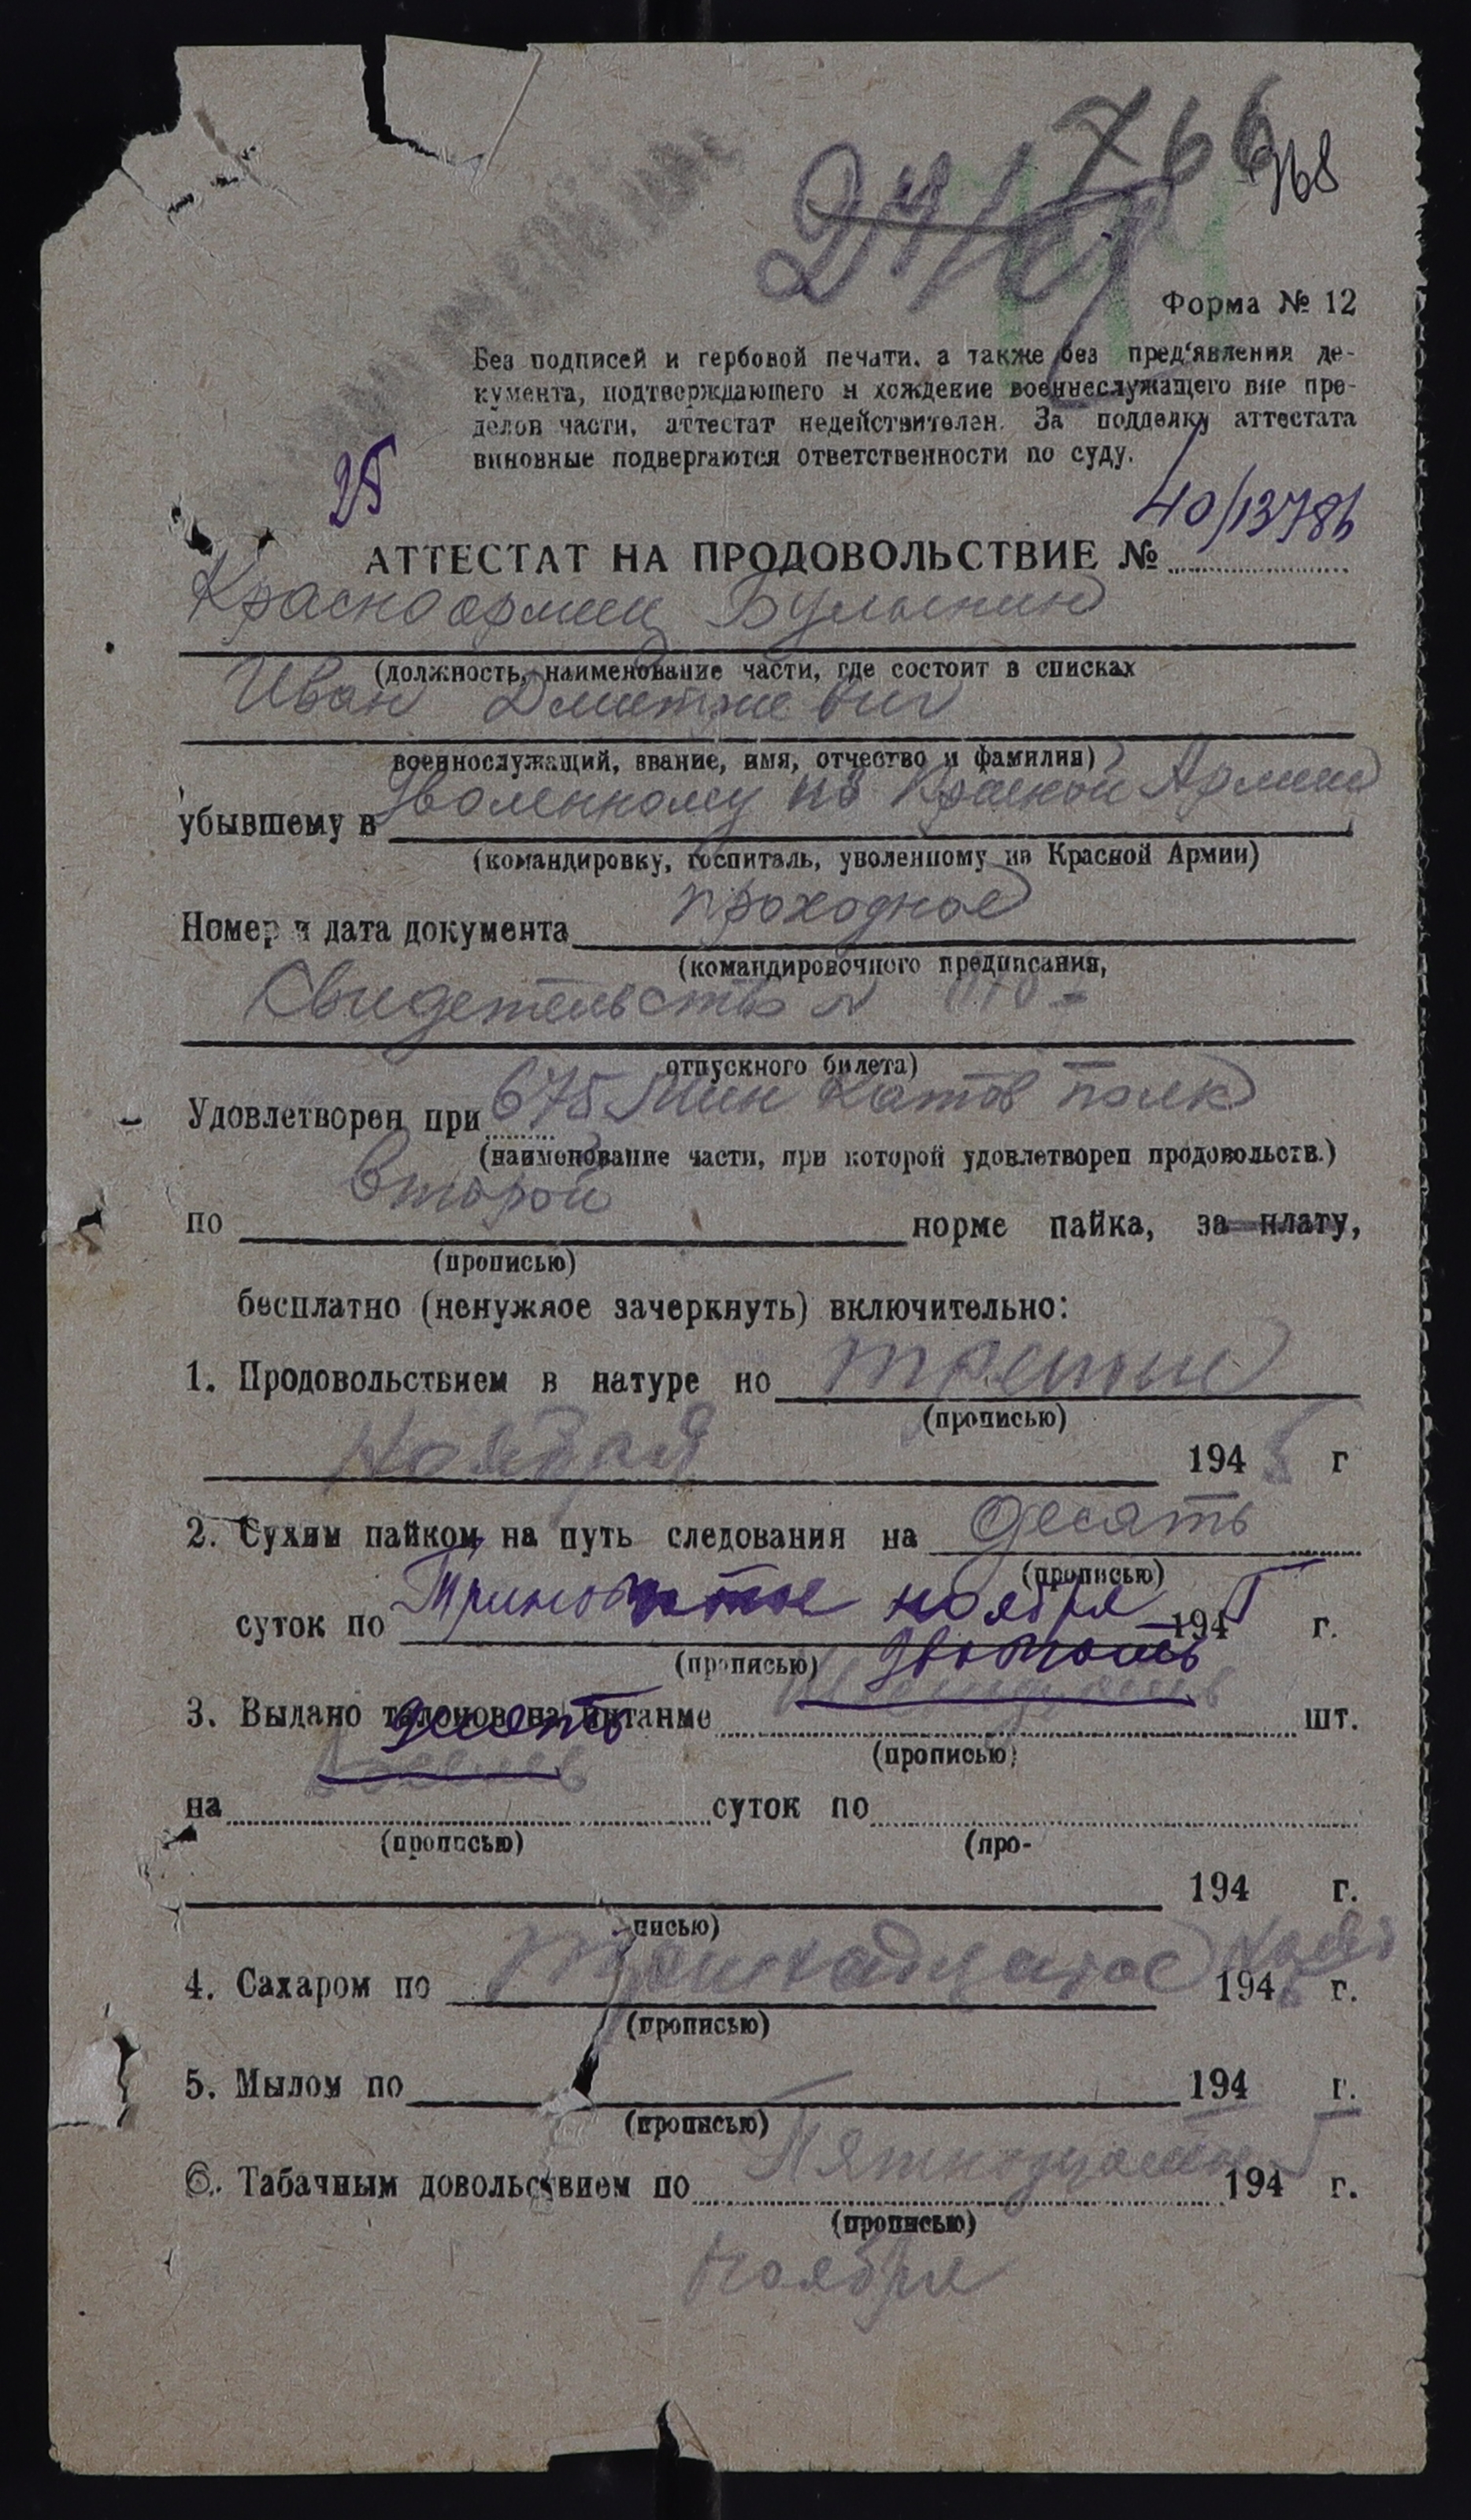 766
768
Форма № 12
Без подписей и гербовой печати, а также без пред'явления де-
кумента, подтверждающего н хождение военнеслужащего вне пре-
делов части, аттестат недействителен. За подделку аттестата
виновные подвергаются ответственности по суду.
25
40/13786
АТТЕСТАТ НА ПРОДОВОЛЬСТВИЕ №
Красноармеец Булыкин
(должность, наименование части, где состоит в списках
Иван Дмитриевич
военнослужащий, звание, имя, отчество и фамилия)
убывшему в уволенному из Красной Армии
(командировку, госпиталь, уволенному из Красной Армии)
Номер и дата документа проходное
(командировочного предписания,
Свидетельство №
отпускного билета)
Удовлетворен при 675 Мин полк
(наименование части, при которой удовлетворен продовольств.)
по второй норме пайка, за плату,
(прописью)
бесплатно (ненужное зачеркнуть) включительно:
1. Продовольствием в натуре по третие
(прописью)
Ноября 1945 г
2. Сухим пайком на путь следования на десять
(прописью)
суток по Тринадцатое ноября 1945 г.
(прописью)
двадцать
3. Выдано талонов на питание шт.
десять
(прописью)
на суток по
(прописью) (про-
194 г.
писью)
4. Сахаром по Тринадцатое Нояб 1945 г.
(прописью)
5. Мылом по — 194 г.
(прописью)
6. Табачным довольствием по Пятнадцатое 1945 г.
(прописью)
Ноября